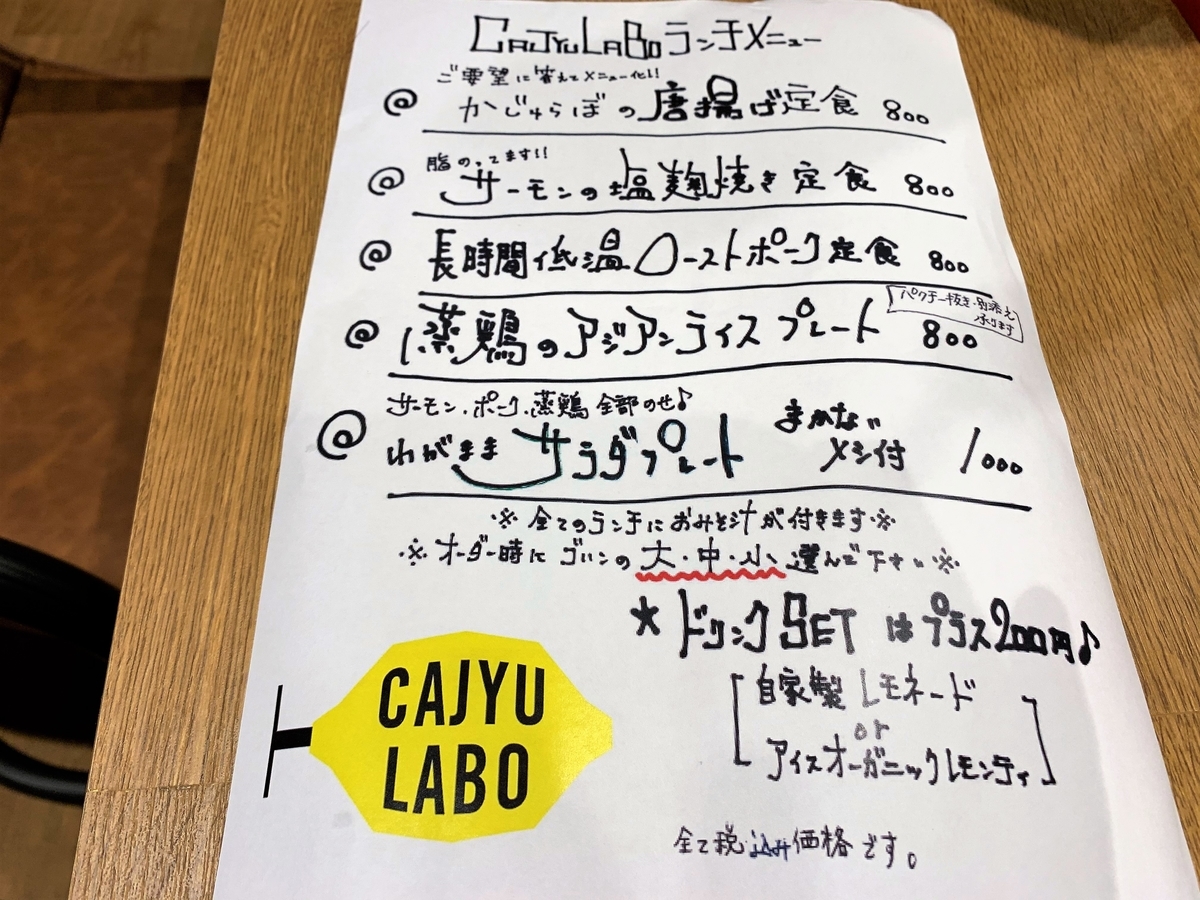 CAJYU LABO ランチメニュー
ご要望に答えてメニュー化!!
@ かじゅらぼの唐揚げ定食 800
脂のってます!!
@ サーモンの塩麹焼き定食 800
@ 長時間低温ローストポーク定食 800
パクチー抜き・別添え
承ります
@ 蒸鶏のアジアンライスプレート 800
サーモン.ポーク.蒸鶏 全部のせ♪
@ わがままサラダプレート まかない
メシ付 1000
※ 全てのランチにおみそ汁が付きます※
※ オーダー時にゴハンの大・中・小 選んで下さい※
★ ドリンクSET はプラス200円♪
自家製 レモネード
or
アイスオーガニックレモンティ
CAJYU
LABO
全て税込み価格です。